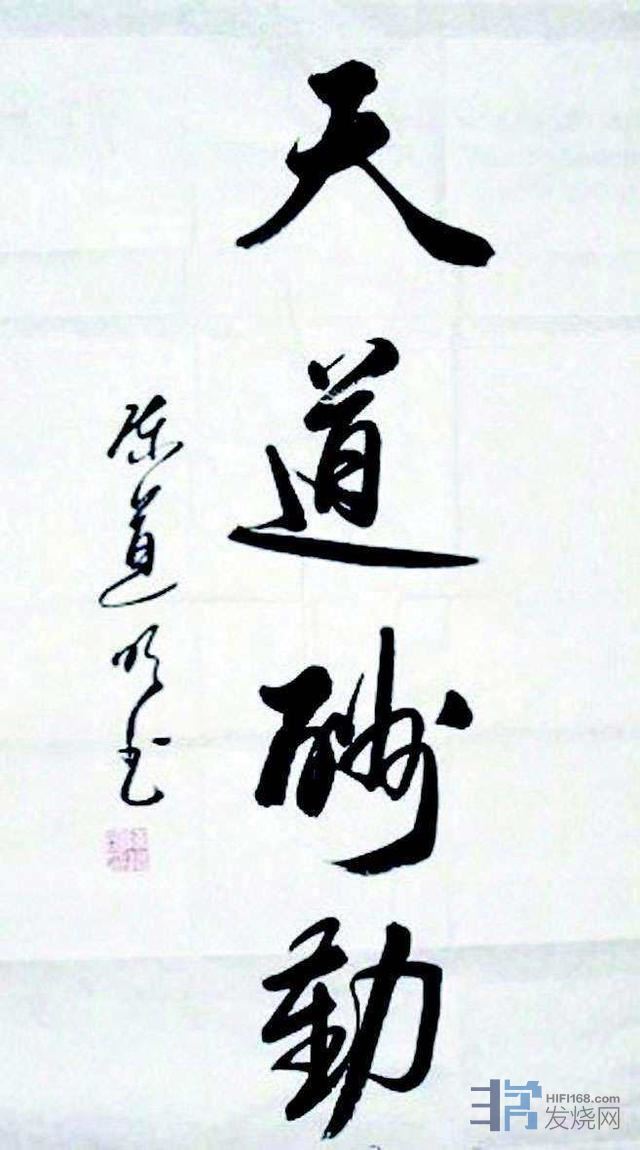 天道酬勤
陈道明书
HIFI168.com
发烧网